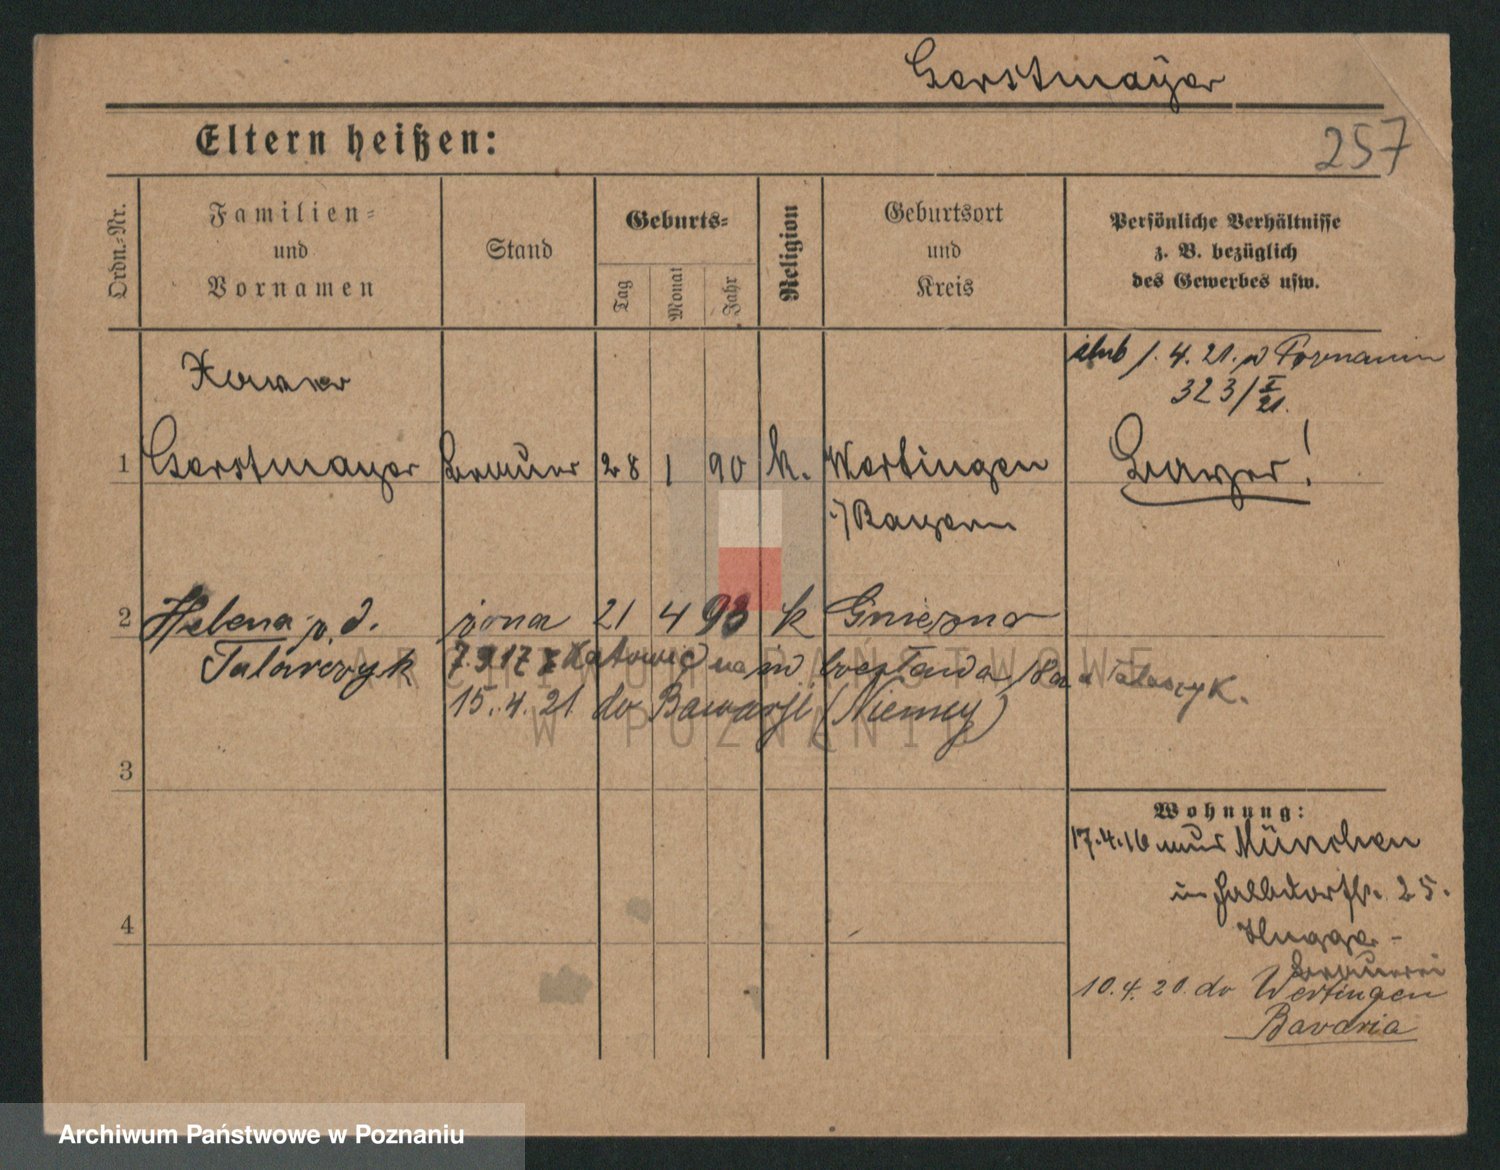 Gerstmayer
257
Eltern heißen:
Ordn.-Nr.
Familien-
und
Vornamen
Stand
Geburts-
Tag
Monat
Jahr
Religion
Geburtsort
und
Kreis
Persönliche Verhältnisse
z. B. bezüglich
des Gewerbes usw.
ślub 1. 4. 21. w Poznaniu
323/I
21.
Xaver
1 Gerstmayer Brauer 28 1 90 k. Wertingen Bayer!
i/Bayern
2 Helena p. d. żona 21 4 93 k Gniezno
Talarczyk 7.9.17 z Katowic na
15. 4. 21 do Bawarji (Niemcy)
3
Wohnung:
17.4.16 aus München
in Halbdorfstr. 25.
Hugger-
brauerei
4
10.4.20. do Wertingen
Bavaria
ARCHIWUM PAŃSTWOWE
W POZNANIU
Archiwum Państwowe w Poznaniu